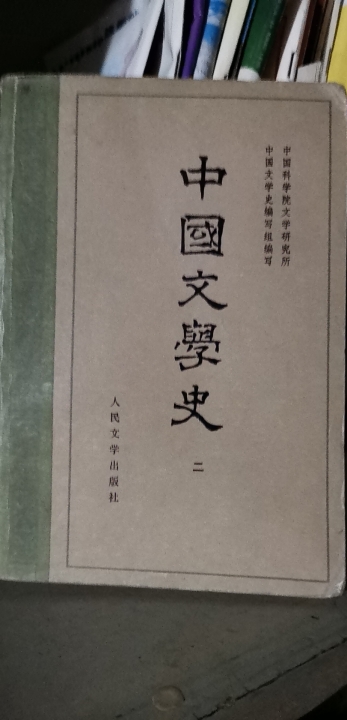 中国科学院文学研究所
中国文学史编写组编写
中國文學史
二
人民文学出版社